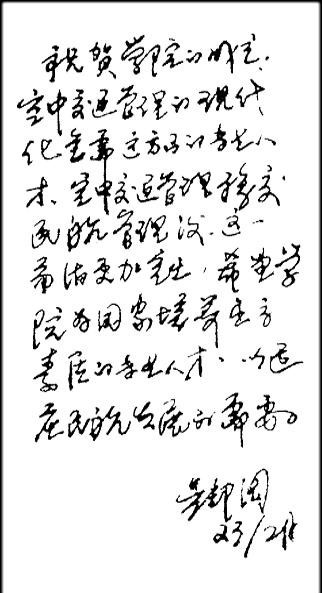 祝贺学院的成立.
空中交通管理的现代
化急需这方面的专业人
才. 空中交通管理移交
民航管理后. 这一
需求更加突出, 希望学
院为国家培养更高
素质的专业人才, 以适
应民航发展的需要